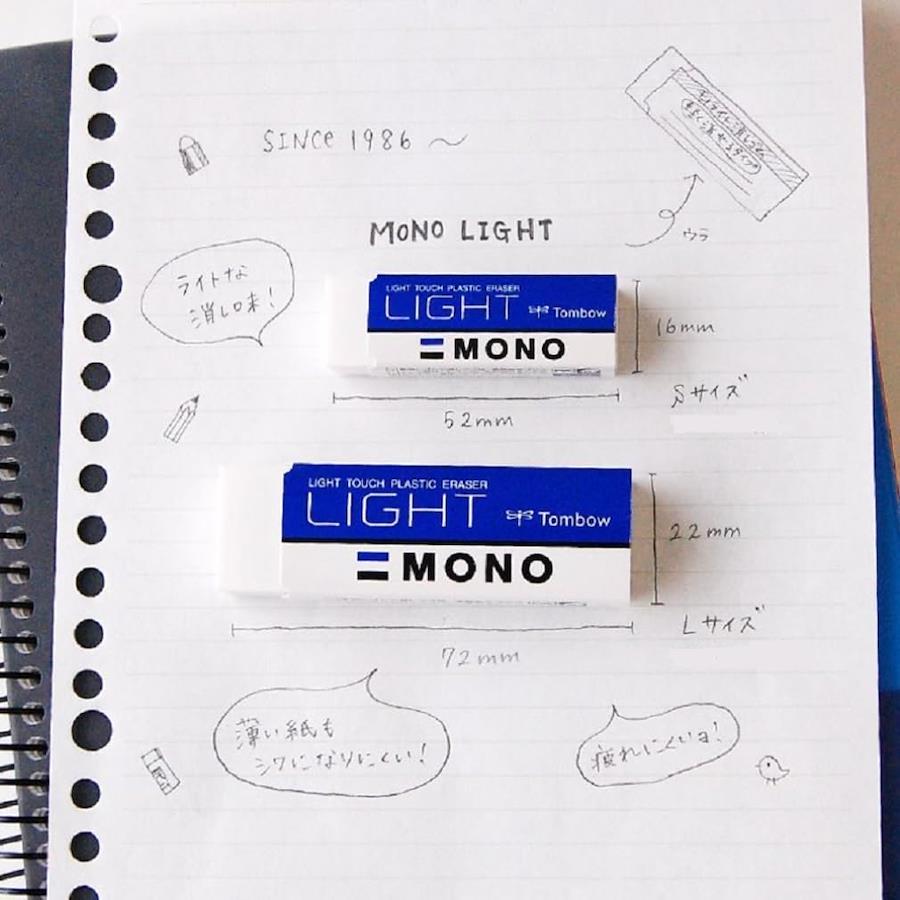 SINCE 1986 ～
軽く消せるタイプ
ウラ
MONO LIGHT
ライトな
消し味!
LIGHT TOUCH PLASTIC ERASER
LIGHT Tombow
MONO
16mm
Sサイズ
52mm
LIGHT TOUCH PLASTIC ERASER
LIGHT Tombow
MONO
22mm
Lサイズ
72mm
薄い紙も
シワになりにくい!
疲れにくいヨ!